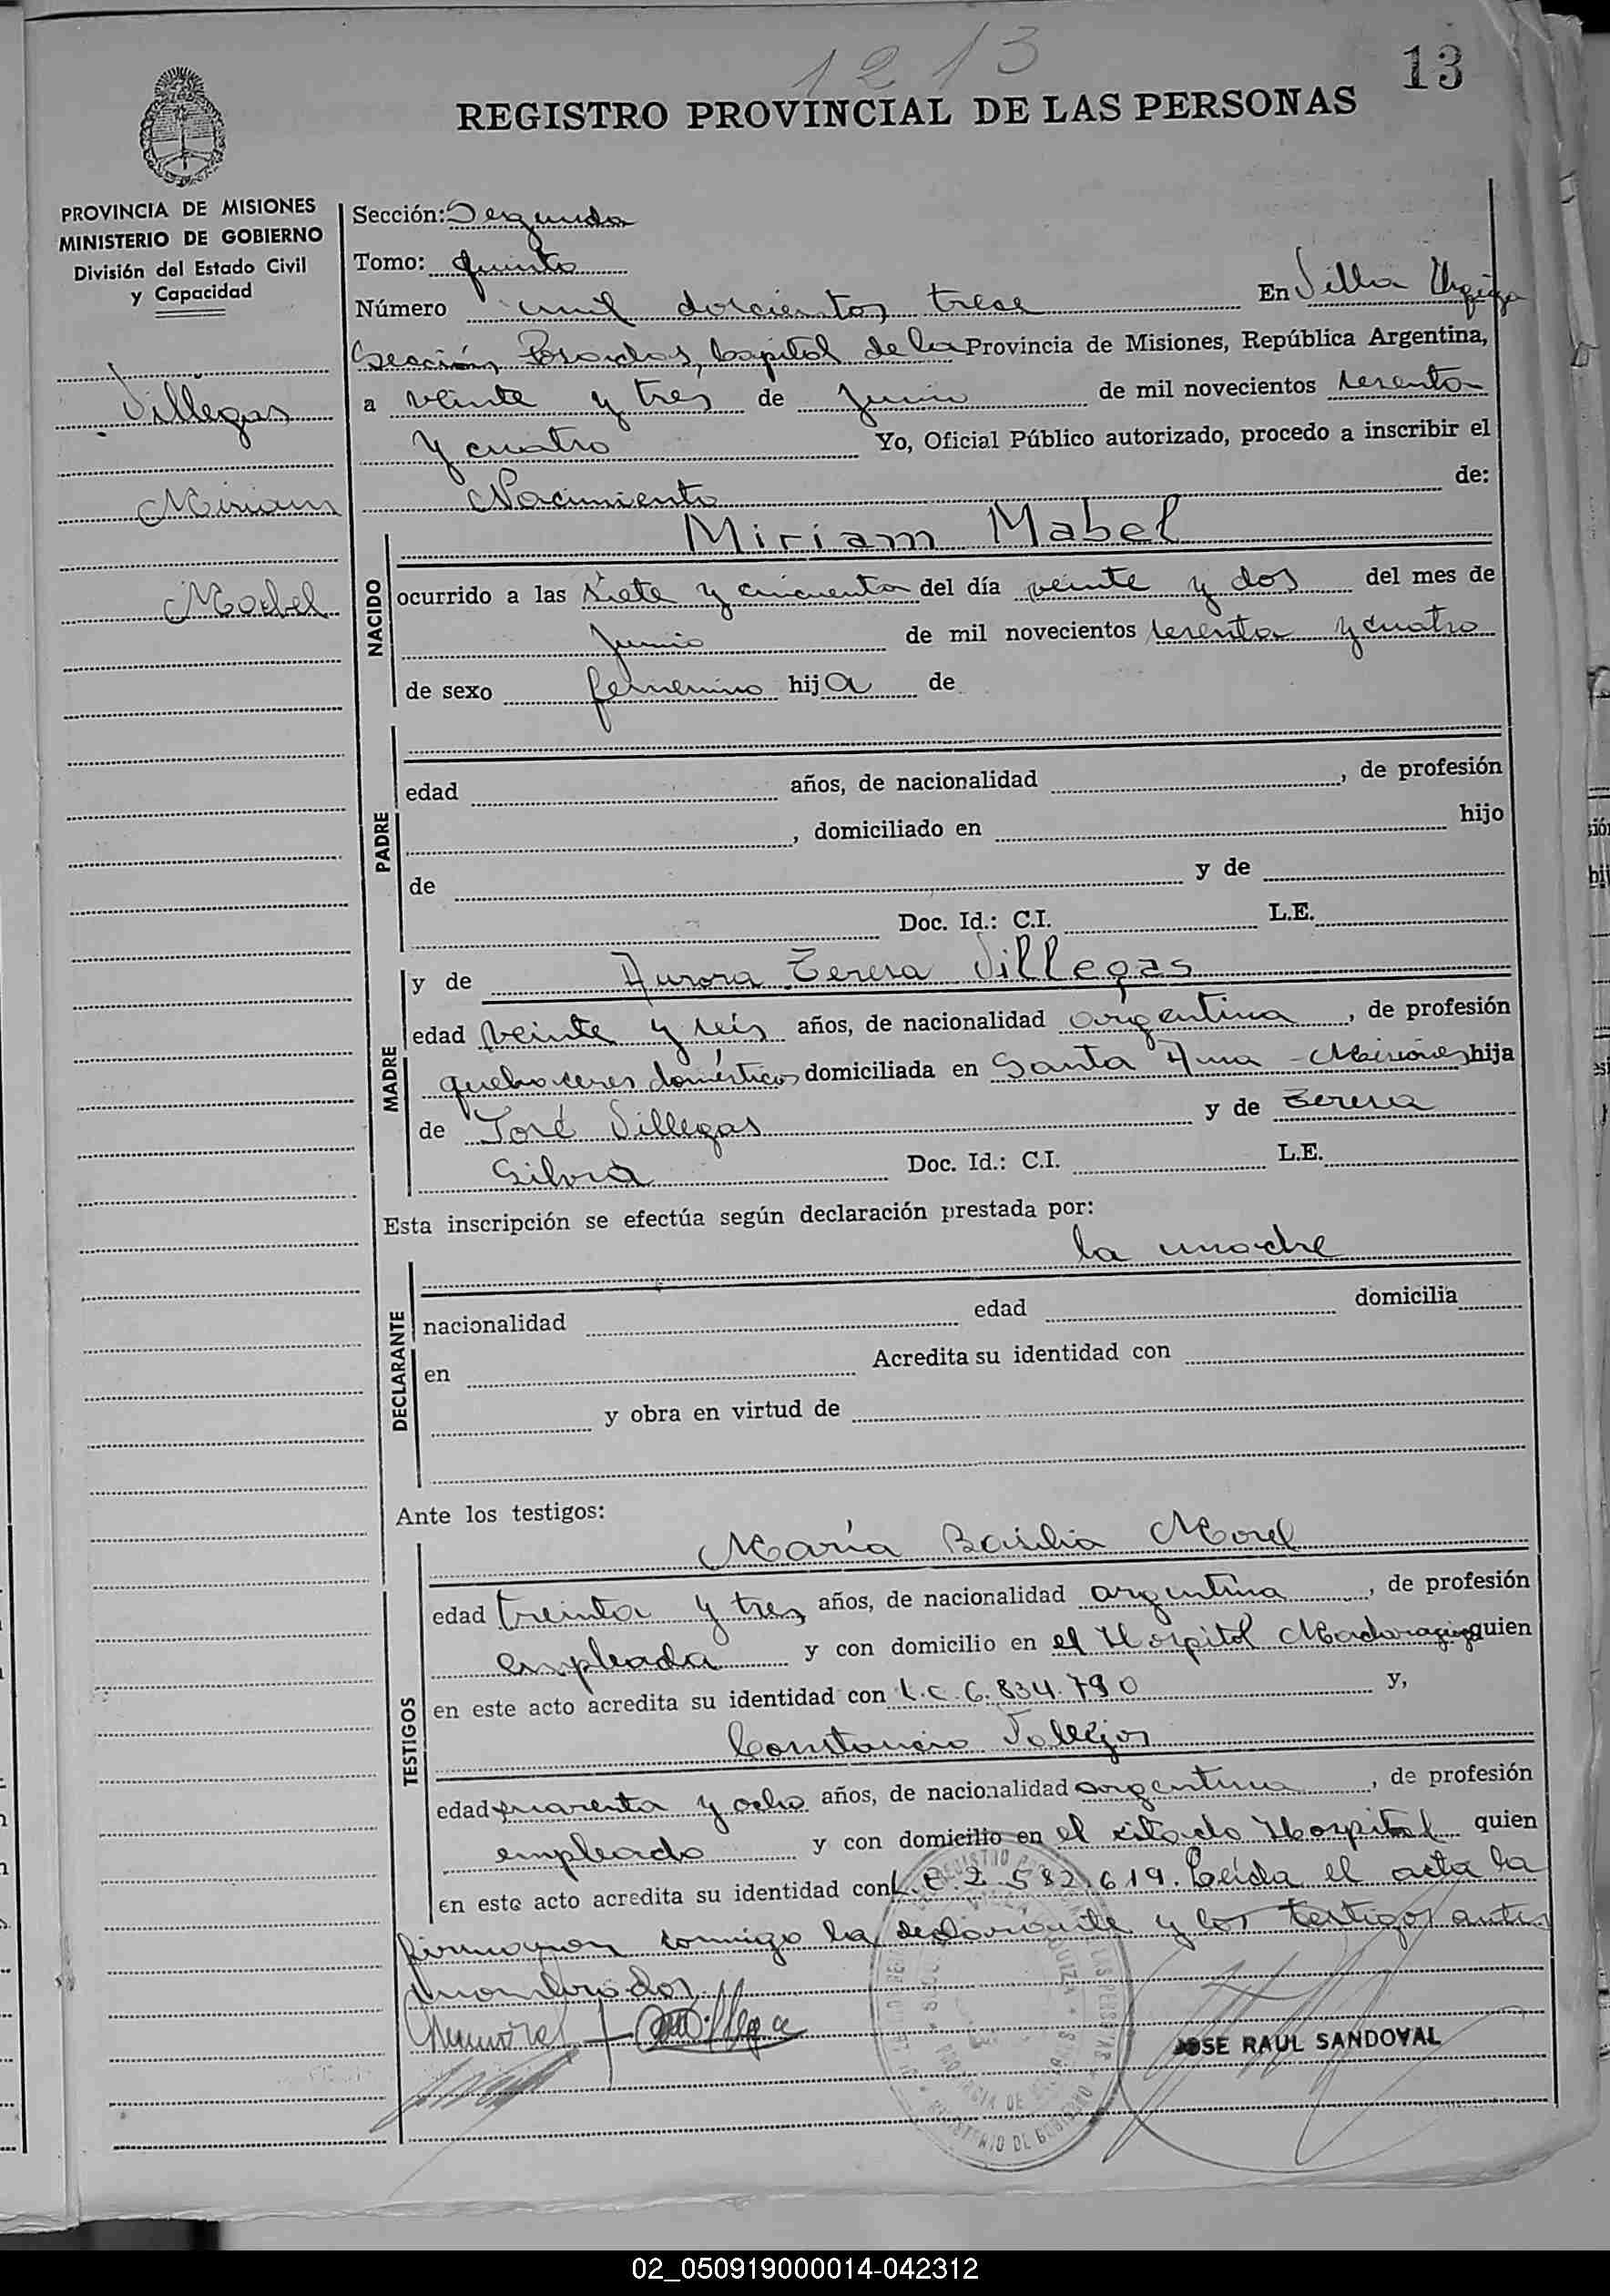 1213
13
REGISTRO PROVINCIAL DE LAS PERSONAS
PROVINCIA DE MISIONES
MINISTERIO DE GOBIERNO
División del Estado Civil
y Capacidad
Villegas
Miriam
Mabel
Sección: Segunda
Tomo: quinto
Número mil doscientos trece En Villa Urquiza
Sección Posadas, Capital de la Provincia de Misiones, República Argentina,
a veinte y tres de Junio de mil novecientos sesenta
y cuatro Yo, Oficial Público autorizado, procedo a inscribir el
Nacimiento de:
NACIDO
Miriam Mabel
ocurrido a las siete y cincuenta del día veinte y dos del mes de
Junio de mil novecientos sesenta y cuatro
de sexo femenino hija de
PADRE
edad años, de nacionalidad , de profesión
, domiciliado en hijo
de y de
Doc. Id.: C.I. L.E.
MADRE
y de Aurora Teresa Villegas
edad veinte y seis años, de nacionalidad argentina , de profesión
quehaceres domésticos domiciliada en Santa Ana - Misiones hija
de José Villegas y de Teresa
Silva Doc. Id.: C.I. L.E.
Esta inscripción se efectúa según declaración prestada por:
DECLARANTE
la madre
nacionalidad edad domicilia
en Acredita su identidad con
y obra en virtud de
Ante los testigos:
TESTIGOS
María Basilia Morel
edad treinta y tres años, de nacionalidad argentina , de profesión
empleada y con domicilio en el Hospital Madariaga quien
en este acto acredita su identidad con L.C. 6.834.790 y,
Constancio Vallejos
edad cuarenta y ocho años, de nacionalidad argentina , de profesión
empleado y con domicilio en el citado Hospital quien
en este acto acredita su identidad con L.E. 2.582.619. Leída el acta la
firmaron conmigo la declarante y los testigos ante
nombrados.
JOSE RAUL SANDOVAL
02_050919000014-042312